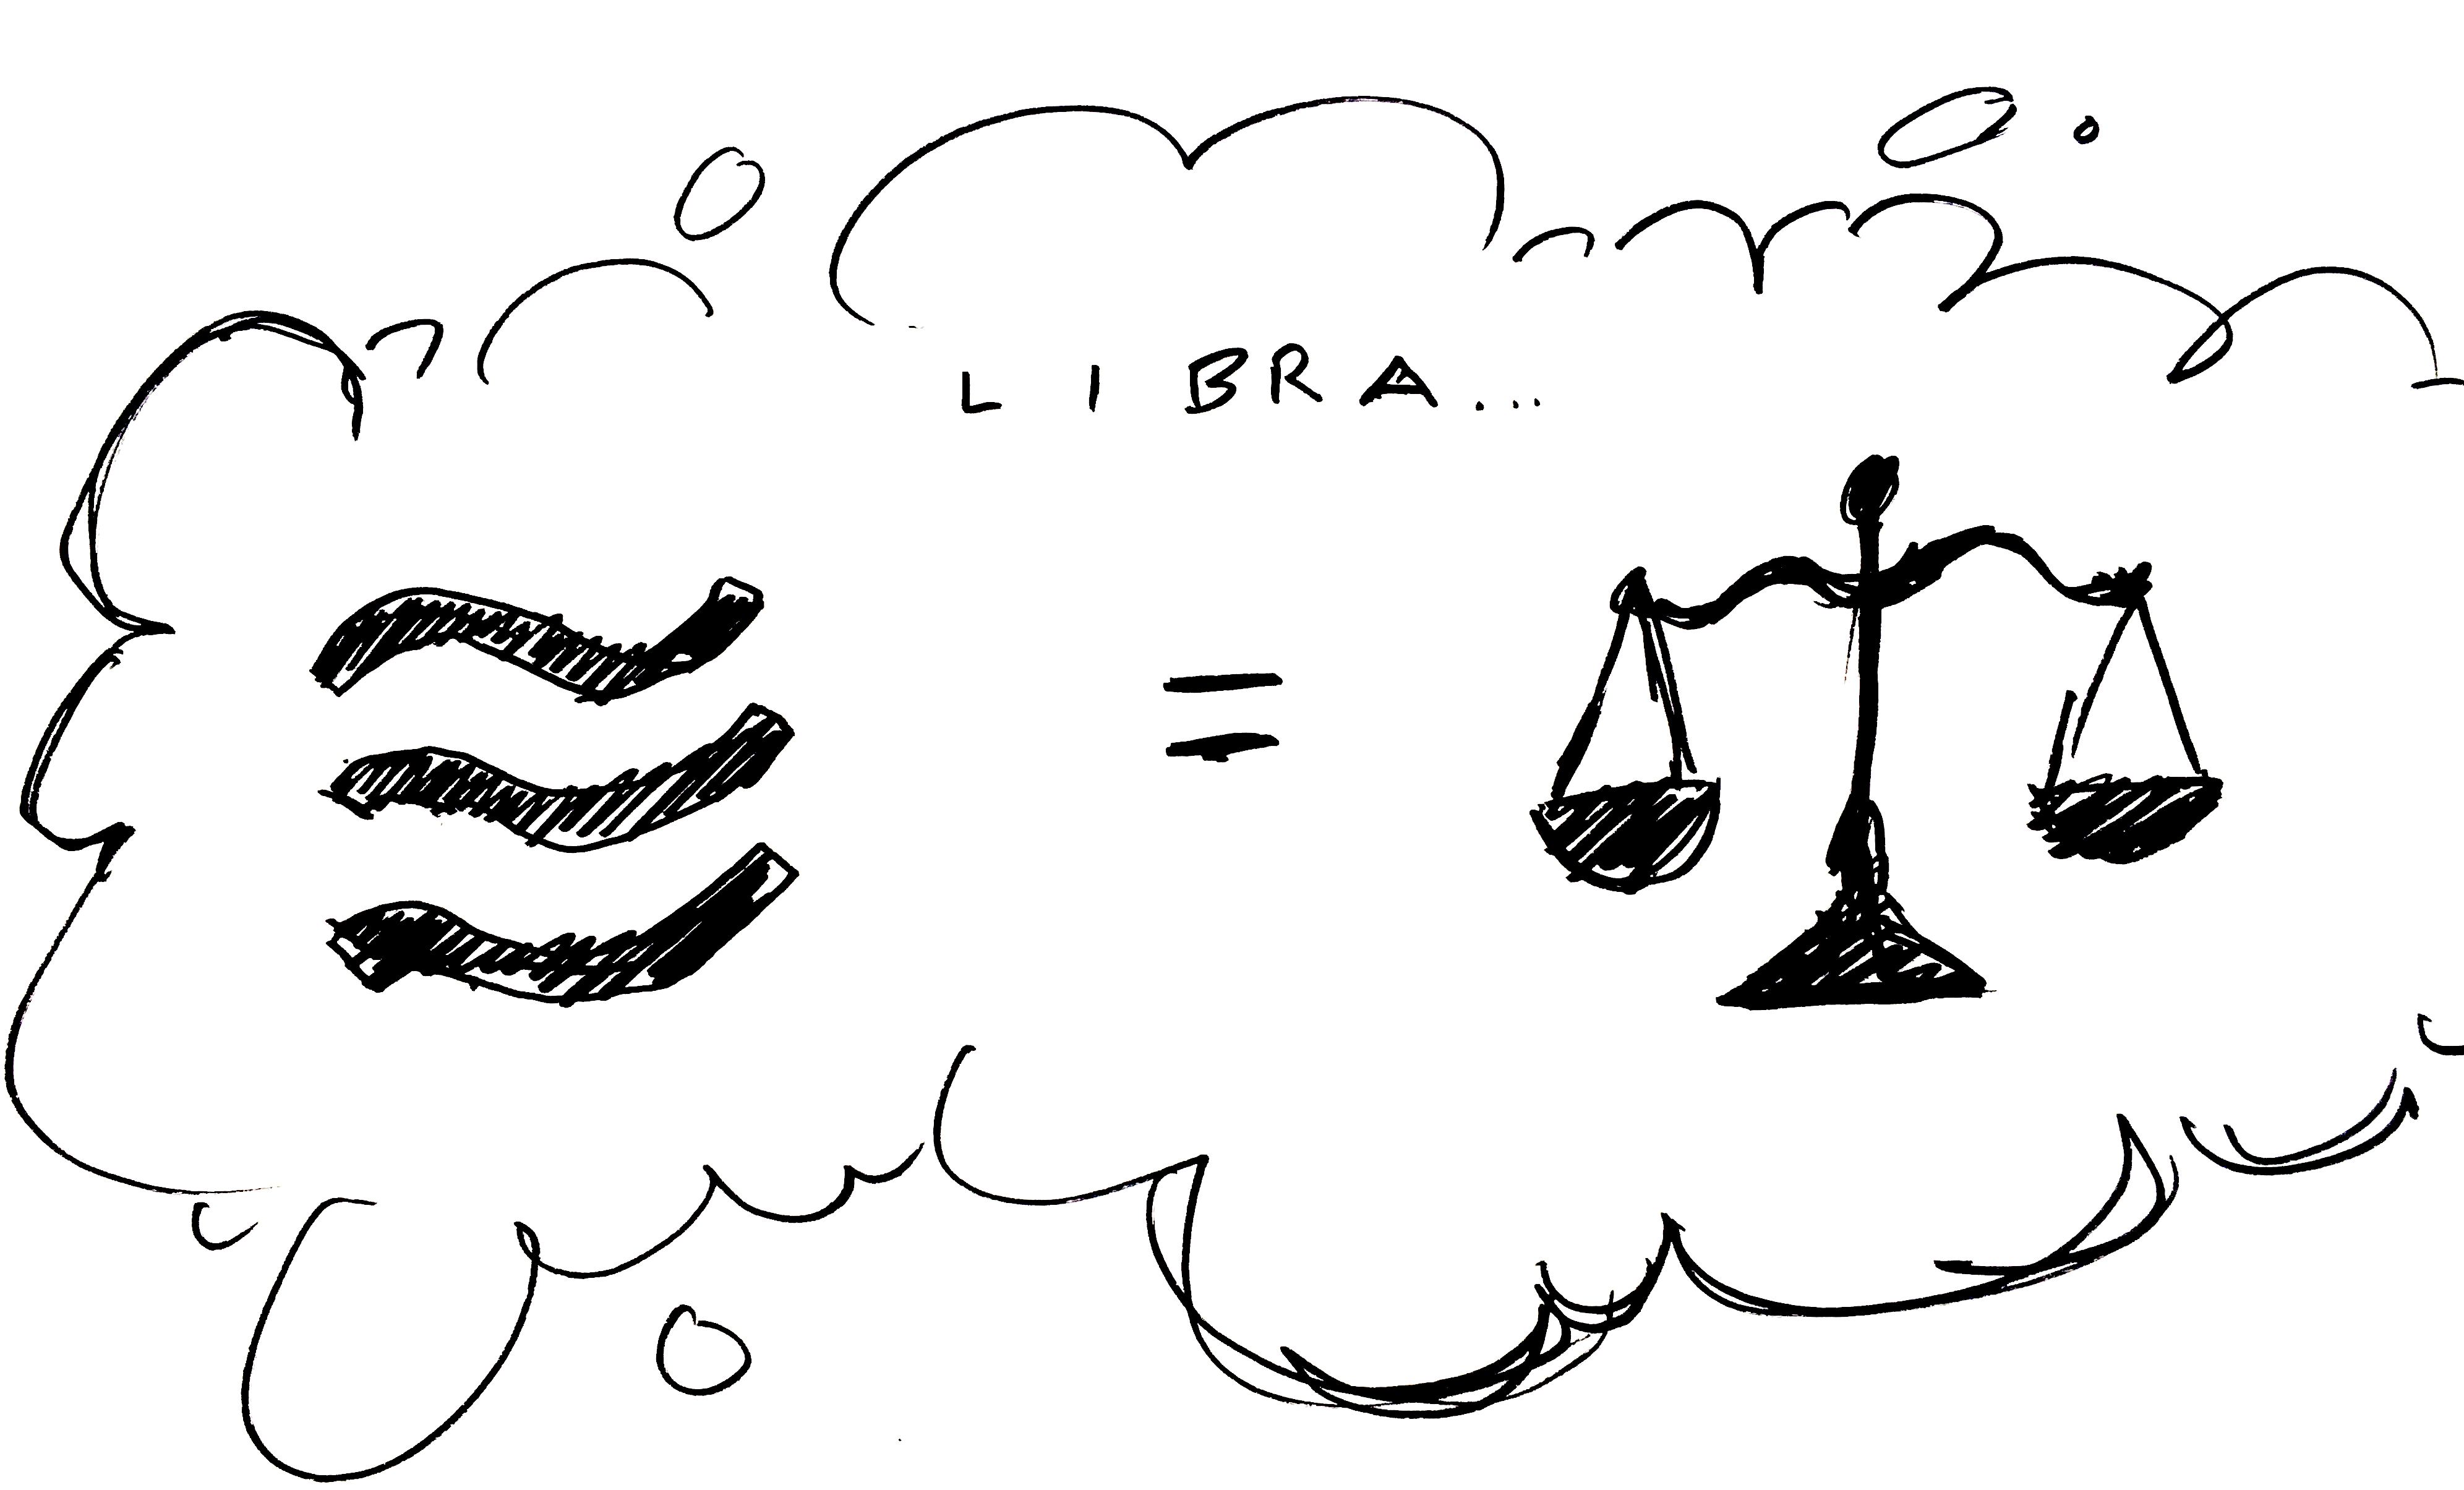 LIBRA...
=